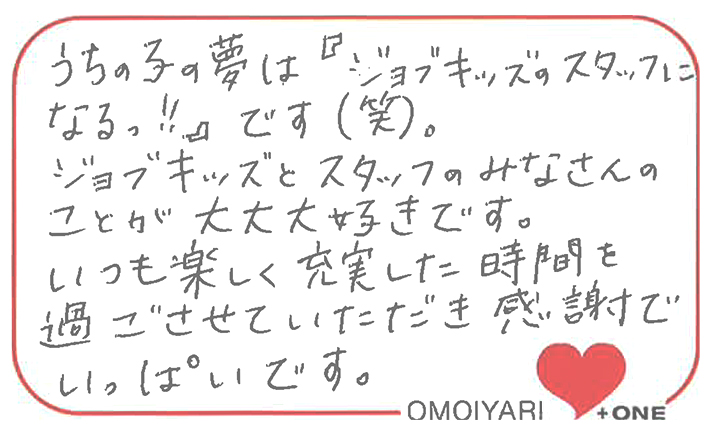 うちの子の夢は『ジョブキッズのスタッフに
なるっ!!』です(笑)。
ジョブキッズとスタッフのみなさんの
ことが大大大好きです。
いつも楽しく充実した時間を
過ごさせていただき感謝で
いっぱいです。
OMOIYARI +ONE